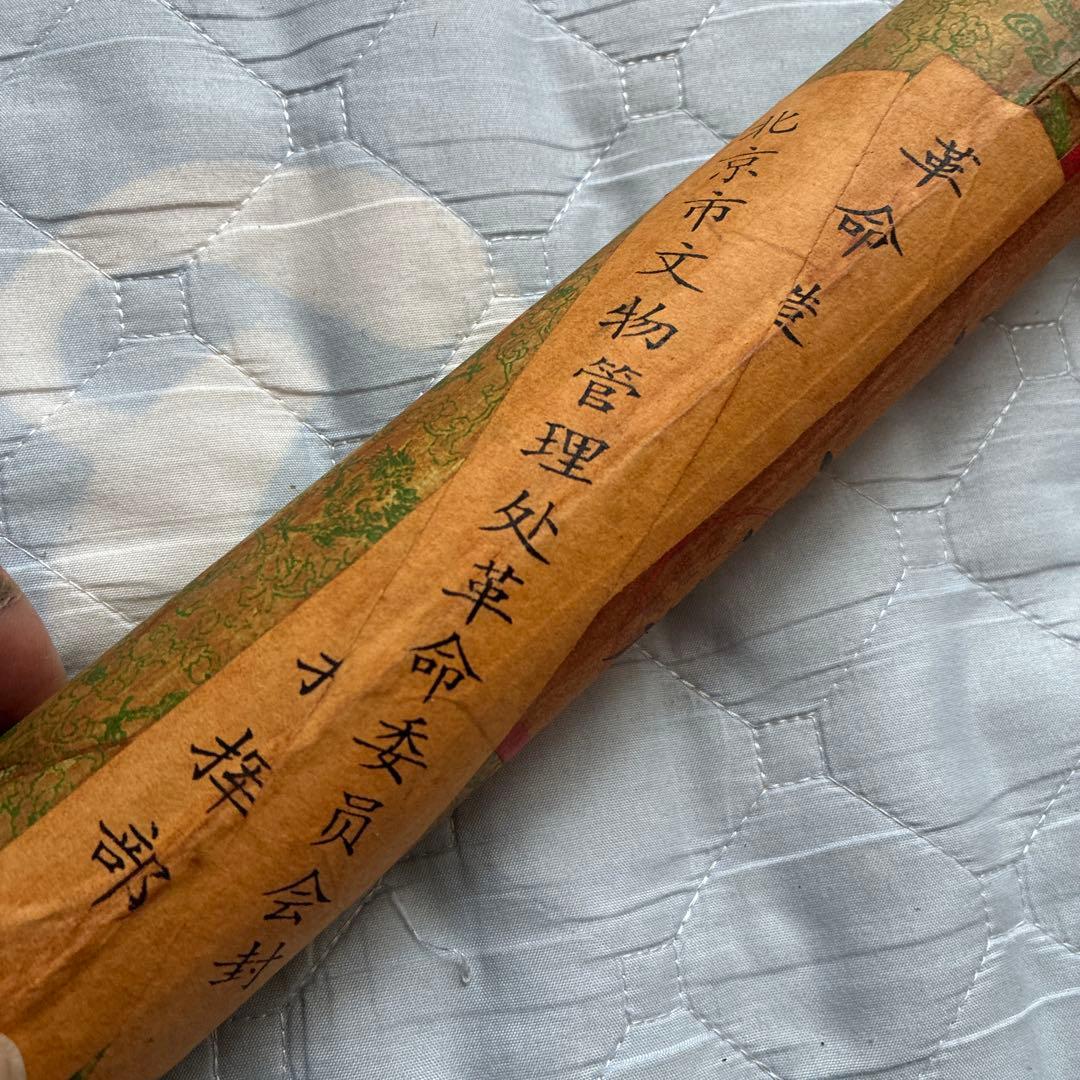 革命
北京市文物管理处革命委员会封
挥部